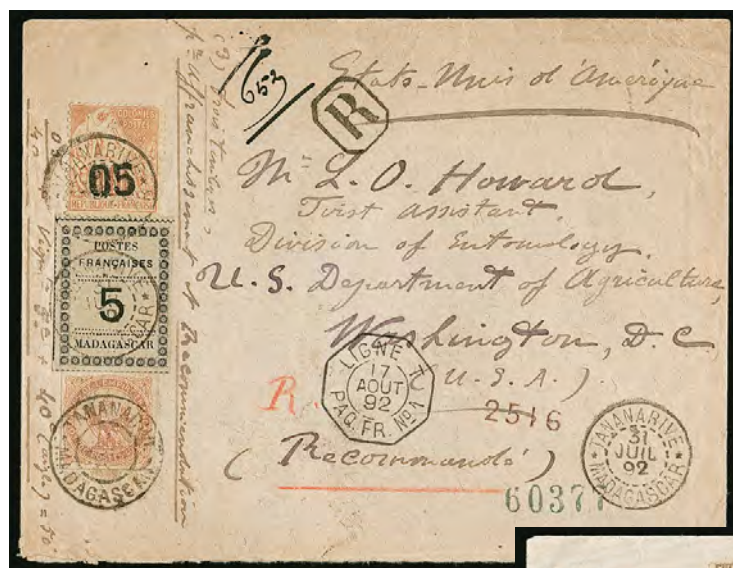 Etats-Unis d'Amérique
R
653
M L. O. Howard,
First assistant,
Division of Entomology.
U. S. Department of Agriculture,
Washington, D. C
(U. S. A.)
R.
2516
(Recommandé)
60377
LIGNE
17
AOUT
92
PAQ. FR. Nº1
TANANARIVE
31
JUIL
92
MADAGASCAR
COLONIES
POSTES
05
REPUBLIQUE FRANCAISE
POSTES
FRANÇAISES
5
MADAGASCAR
TANANARIVE
MADAGASCAR
(3) trois timbres
pr affranchissement et recommandation